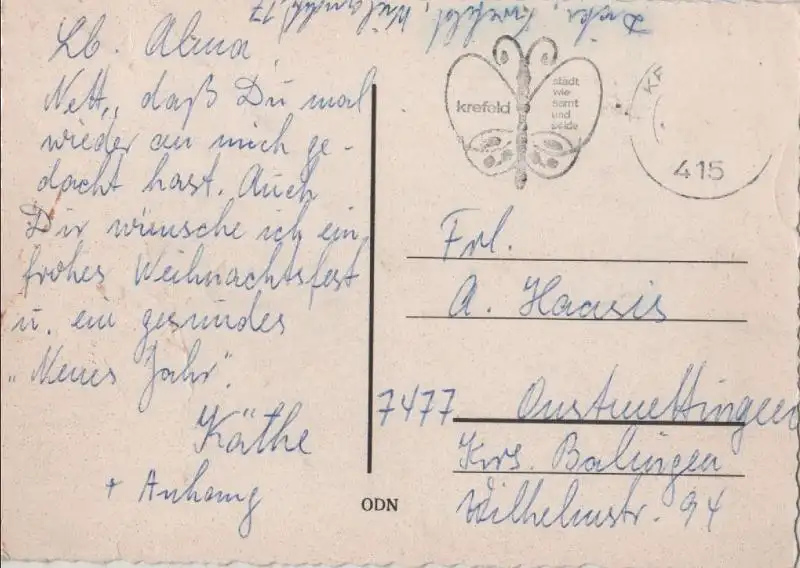 Krefeld,
Lb. Alma,
Nett, daß Du mal
wieder an mich ge-
dacht hast. Auch
Dir wünsche ich ein
frohes Weihnachtsfest
u. ein gesundes
"Neues Jahr".
Käthe
+ Anhang
krefeld
stadt
wie
samt
und
seide
KR
415
Frl.
A. Haasis
7477 Onstmettingen
Krs. Balingen
Wilhelmstr. 94
ODN